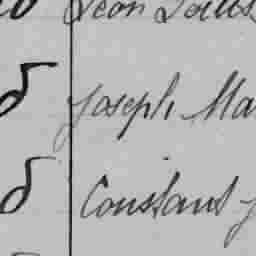 Léon Louis
5 Joseph Ma
5 Constant J